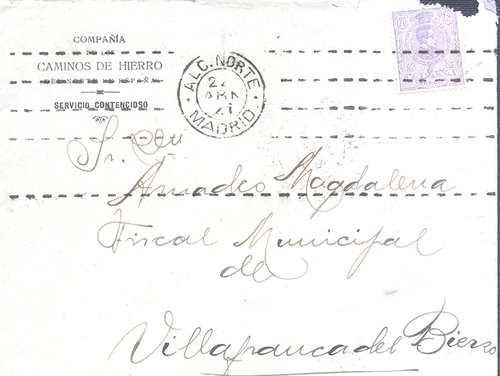 COMPAÑÍA
DE LOS
CAMINOS DE HIERRO
DEL NORTE DE ESPAÑA
SERVICIO CONTENCIOSO
ALC. NORTE
22
MADRID
15 15
Sr. Dn
Amadeo Magdalena
Fiscal Municipal
de
Villafranca del Bierzo